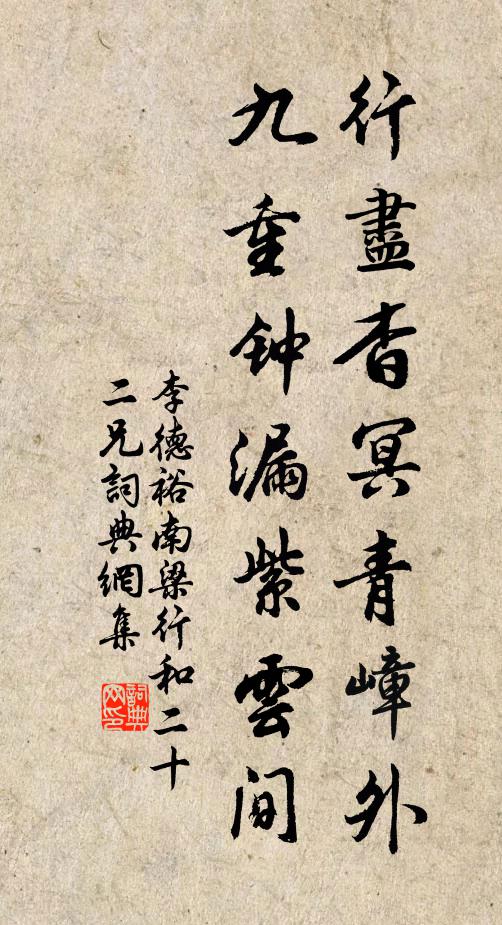 行盡杳冥青嶂外
九重钟漏紫雲间
李德裕南梁行和二十
二兄詞典網集
詞典网印